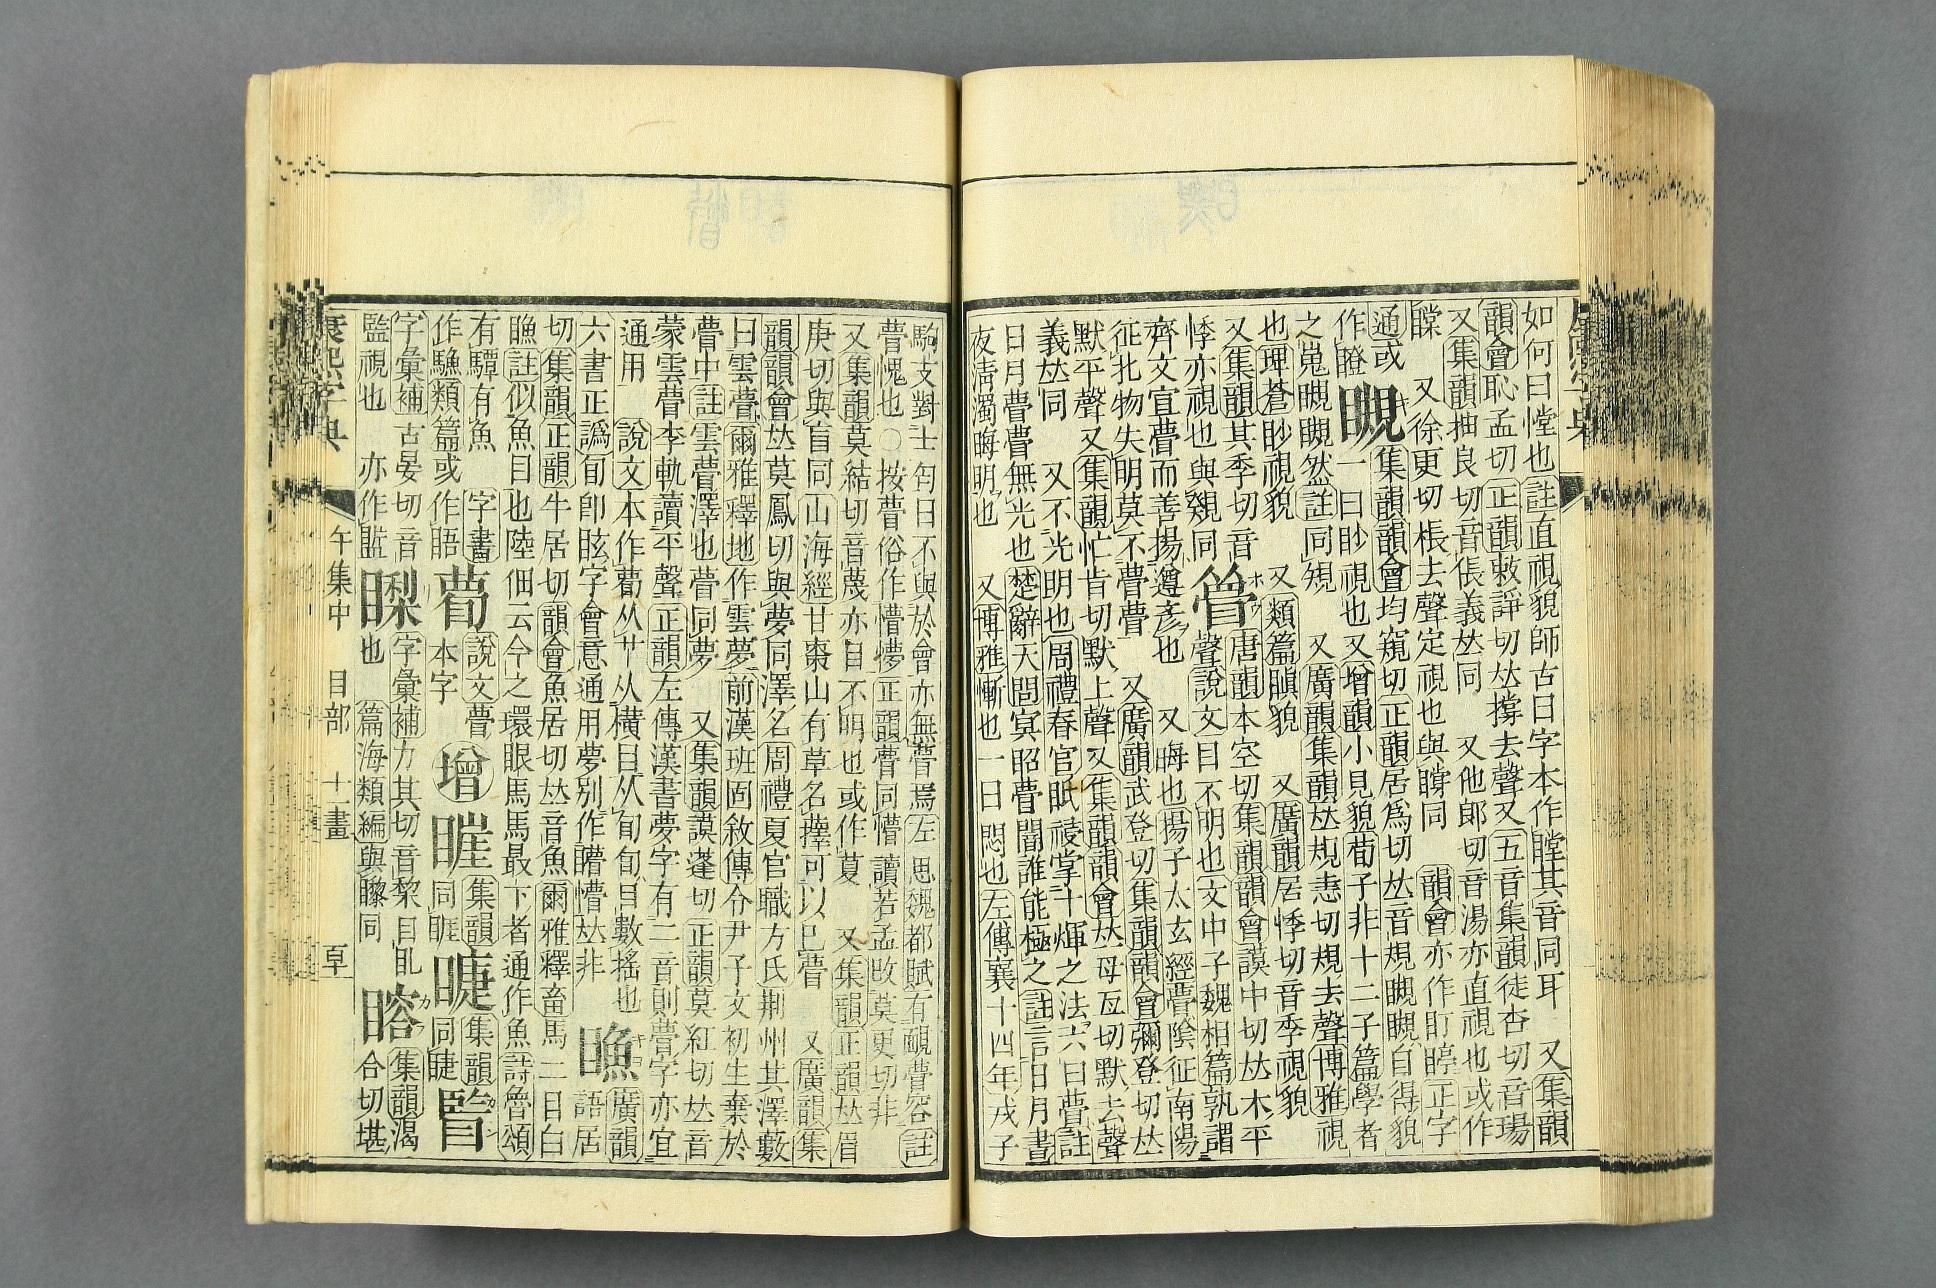 如何曰瞠也註直視貌師古曰字本作瞠其音同耳 又集韻
韻會恥孟切正韻敕諍切𠀤撐去聲又五音集韻徒杏切音瑒
又集韻抽良切音倀義𠀤同 又他郎切音湯亦直視也或作
瞠 又徐更切棖去聲定視也與瞕同 韻會亦作盯正字
通或 瞡 集韻韻會均窺切正韻居爲切𠀤音規瞡瞡自得貌
作瞪 一曰眇視也又增韻小見貌荀子非十二子篇學者
之嵬瞡瞡然註同規 又廣韻集韻𠀤規恚切規去聲博雅視
也埤蒼眇視貌 又類篇瞋貌 又廣韻居悸切音季視貌
又集韻其季切音 瞢 唐韻木空切集韻韻會謨中切𠀤木平
悸亦視也與同 聲說文目不明也文中子魏相篇孰謂
齊文宣瞢而善揚遵彥也 又晦也揚子太玄經瞢陰征南陽
征北物失明莫不瞢瞢 又廣韻武登切集韻韻會彌登切𠀤
默平聲又集韻忙肯切默上聲又集韻韻會𠀤母亙切默去聲
義𠀤同 又不光明也周禮春官眂祲掌十煇之法六曰瞢註
日月瞢瞢無光也楚辭天問冥昭瞢闇誰能極之註言日月晝
夜淸濁晦明也 又博雅慚也一曰悶也左傳襄十四年戎子
駒支對士匄曰不與於會亦無瞢焉左思魏都賦有靦瞢容註
瞢愧也○按瞢俗作懵懜正韻瞢同懵讀若孟收莫更切非
又集韻莫結切音蔑亦目不明也或作 又集韻正韻𠀤眉
庚切與盲同山海經甘棗山有草名蘀可以已瞢 又廣韻集
韻韻會𠀤莫鳳切與夢同澤名周禮夏官職方氏荆州其澤藪
曰雲瞢爾雅釋地作雲夢前漢班固敘傳令尹子文初生棄於
瞢中註雲瞢澤也瞢同夢 又集韻謨蓬切正韻莫紅切𠀤音
蒙雲瞢李軌讀平聲正韻左傳漢書夢字有二音則瞢字亦宜
通用 說文本作从从橫目从旬旬目數搖也 廣韻
六書正譌旬卽眩字會意通用夢別作矒懵𠀤非 語居
切集韻正韻牛居切韻會魚居切𠀤音魚爾雅釋畜馬二目白
註似魚目也陸佃云今之環眼馬馬最下者通作魚詩魯頌
有驔有魚 字畫 說文瞢 增 集韻 集韻
作類篇或作 本字 同睚 同睫
字彙補古晏切音 字彙補力其切音黎目乱 集韻渴
監視也 亦作 也 篇海類編與同 合切堪
康熙字典 午集中 目部 十一畫